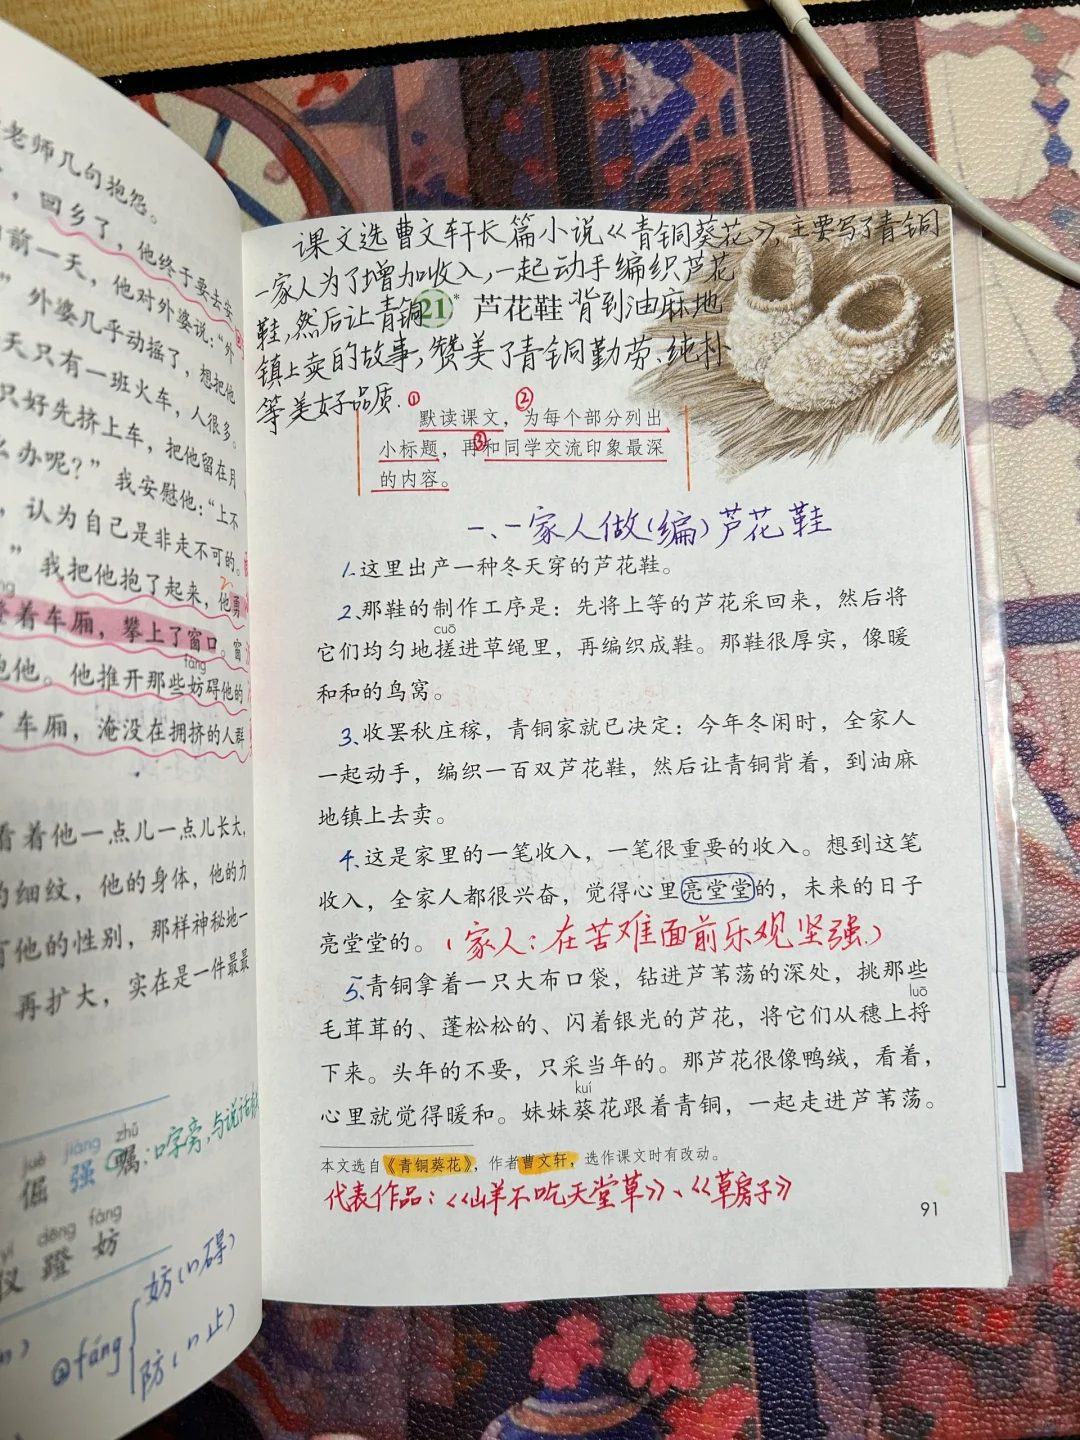 老师几句抱怨。
，回乡了，他终于要去安
前一天，他对外婆说：“外
”外婆几乎动摇了，想把他
天只有一班火车，人很多。
只好先挤上车，把他留在月
么办呢？”我安慰他：“上不
，认为自己是非走不可的。
”我把他抱了起来，他勇
着车厢，攀上了窗口。窗
fáng
他。他推开那些妨碍他的
了车厢，淹没在拥挤的人群
看着他一点儿一点儿长大，
的细纹，他的身体，他的力
有他的性别，那样神秘地一
再扩大，实在是一件最最
juè jiàng zhǔ
倔 强 嘱：口字旁，与说话
dēng fáng
仪 蹬 妨
fáng
妨（碍）
防（止）
课文选曹文轩长篇小说《青铜葵花》，主要写了青铜
一家人为了增加收入，一起动手编织芦花
鞋，然后让青铜背到油麻地
21* 芦花鞋
镇上卖的故事，赞美了青铜勤劳、纯朴
等美好品质.
① ②
默读课文，为每个部分列出
小标题，再③和同学交流印象最深
的内容。
一、一家人做（编）芦花鞋
1、这里出产一种冬天穿的芦花鞋。
2、那鞋的制作工序是：先将上等的芦花采回来，然后将
cuō
它们均匀地搓进草绳里，再编织成鞋。那鞋很厚实，像暖
和和的鸟窝。
3、收罢秋庄稼，青铜家就已决定：今年冬闲时，全家人
一起动手，编织一百双芦花鞋，然后让青铜背着，到油麻
地镇上去卖。
4、这是家里的一笔收入，一笔很重要的收入。想到这笔
收入，全家人都很兴奋，觉得心里亮堂堂的，未来的日子
亮堂堂的。（家人：在苦难面前乐观坚强.）
5、青铜拿着一只大布口袋，钻进芦苇荡的深处，挑那些
luō
毛茸茸的、蓬松松的、闪着银光的芦花，将它们从穗上捋
下来。头年的不要，只采当年的。那芦花很像鸭绒，看着，
kuí
心里就觉得暖和。妹妹葵花跟着青铜，一起走进芦苇荡。
本文选自《青铜葵花》，作者曹文轩，选作课文时有改动。
代表作品：《山羊不吃天堂草》、《草房子》
91